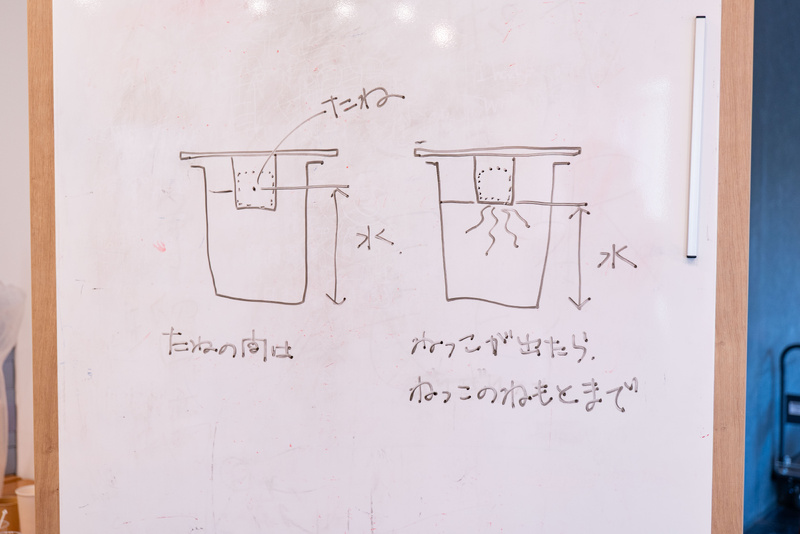 たね
水
水
たねの間は
ねっこが出たら、
ねっこのねもとまで